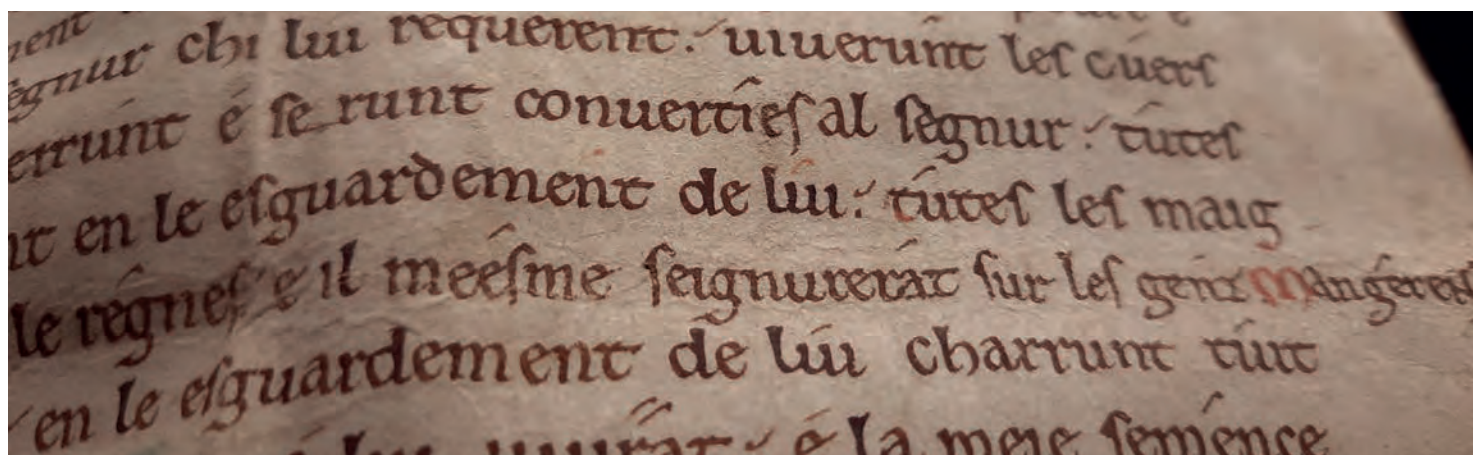 segnur chi lui requerent. uiuerunt les cuers
é se runt conuerties al segnur. tutes
en le esguardement de lui. tutes les maig
le regnes e il meesme seignurerat sur les genz Mangerent
en le esguardement de lui charrunt tuit
uiurat. é la meie semence